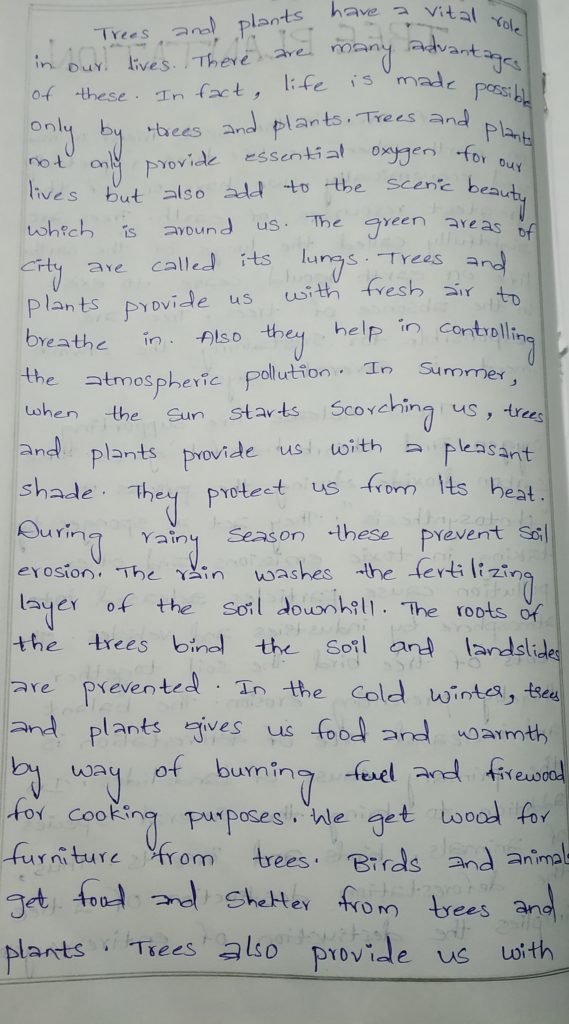 Trees and plants have a vital role
in our lives. There are many advantages
of these. In fact, life is made possible
only by trees and plants. Trees and plants
not only provide essential oxygen for our
lives but also add to the scenic beauty
which is around us. The green areas of
city are called its lungs. Trees and
plants provide us with fresh air to
breathe in. Also they help in controlling
the atmospheric pollution. In summer,
when the sun starts scorching us, trees
and plants provide us with a pleasant
shade. They protect us from its heat.
During rainy season these prevent soil
erosion. The rain washes the fertilizing
layer of the soil downhill. The roots of
the trees bind the soil and landslides
are prevented. In the cold winter, trees
and plants gives us food and warmth
by way of burning fuel and firewood
for cooking purposes. We get wood for
furniture from trees. Birds and animals
get food and shelter from trees and
plants. Trees also provide us with